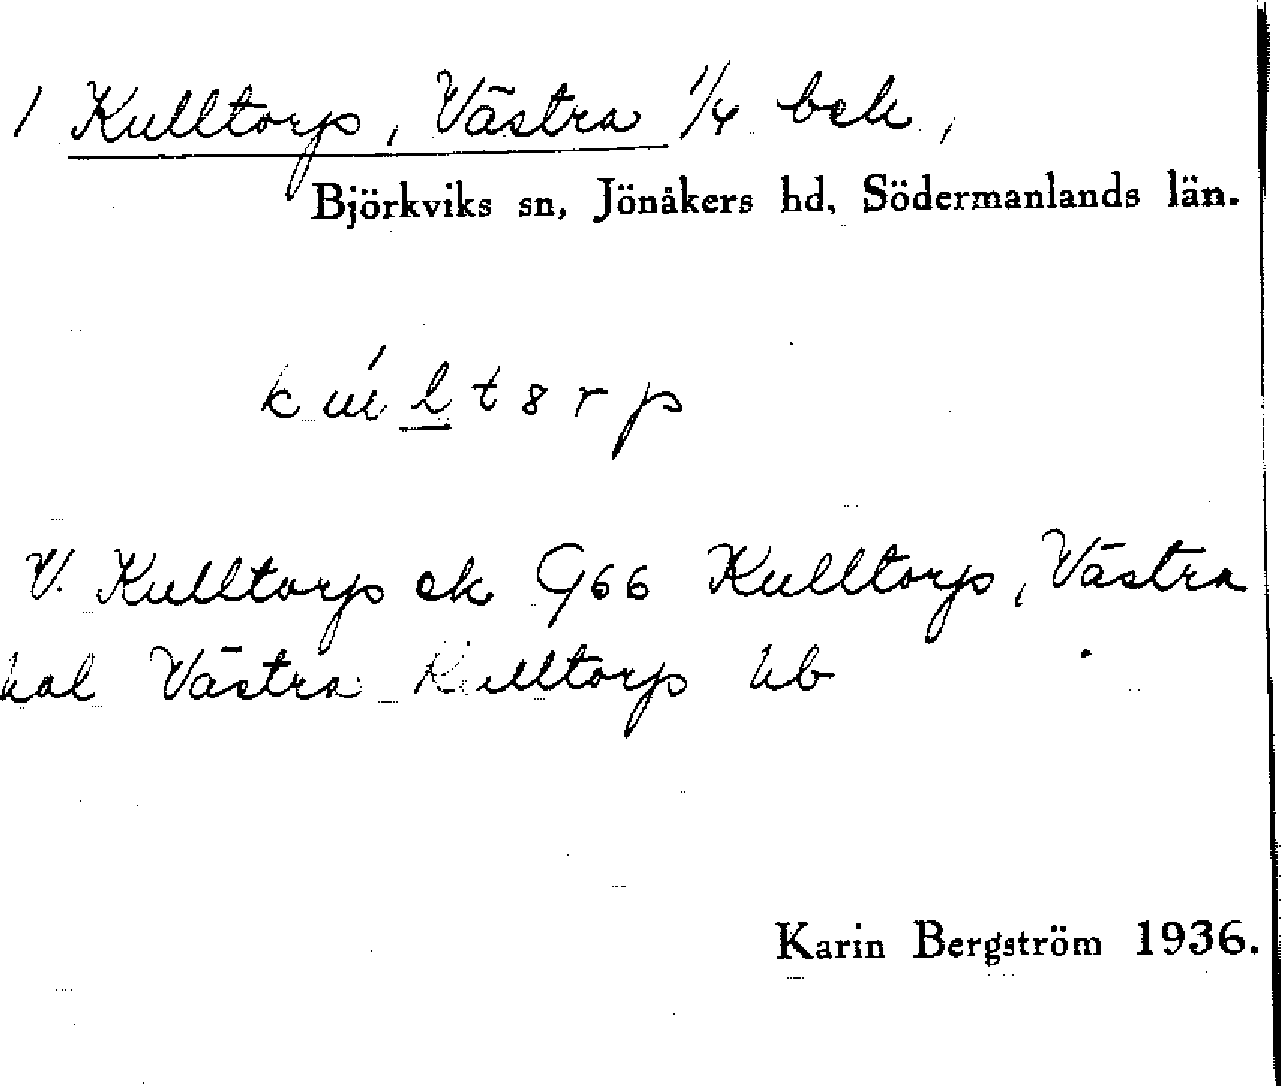 1 Kulltorp, Västra 1/4 beh,
Björkviks sn, Jönåkers hd, Södermanlands län.
kúltorp
V. Kulltorp ek G66 Kulltorp, Västra
hal Västra Kulltorp hb
Karin Bergström 1936.